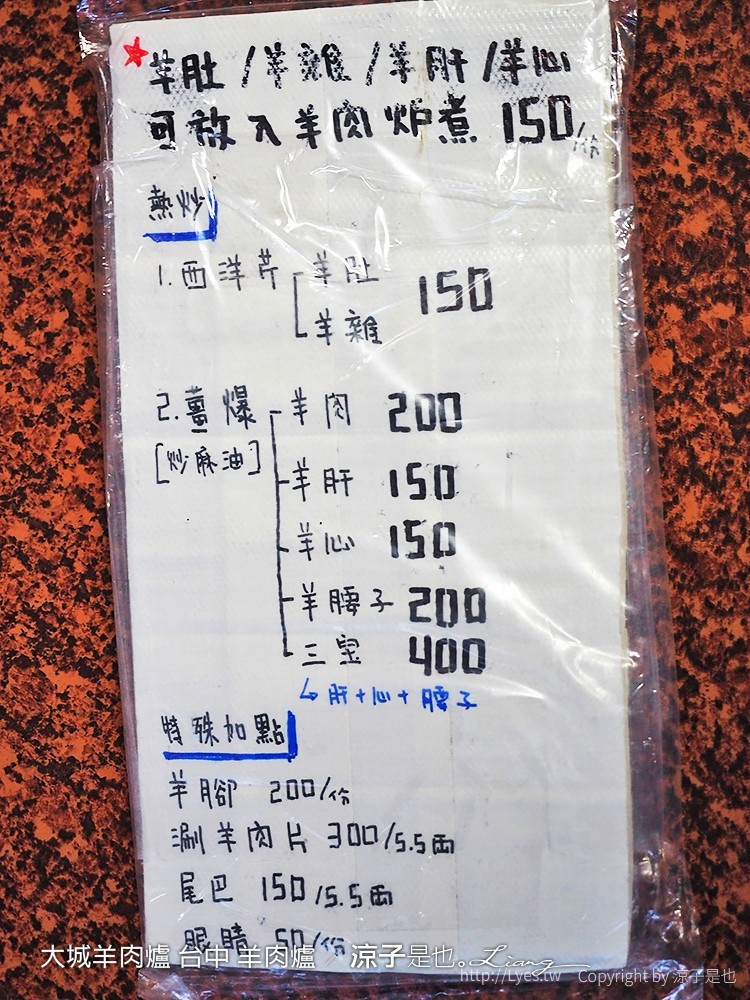 ★羊肚/羊雜/羊肝/羊心
可放入羊肉炉煮 150/份
熱炒
1.西洋芹 羊肚 150
羊雜
2.薑爆 羊肉 200
[炒麻油]
羊肝 150
羊心 150
羊腰子 200
三宝 400
↳肝+心+腰子
特殊加點
羊腳 200/份
涮羊肉片 300/5.5両
尾巴 150/5.5両
眼睛 50/份
大城羊肉爐 台中 羊肉爐 涼子是也。Liang
http://Lyes.tw Copyright by 涼子是也